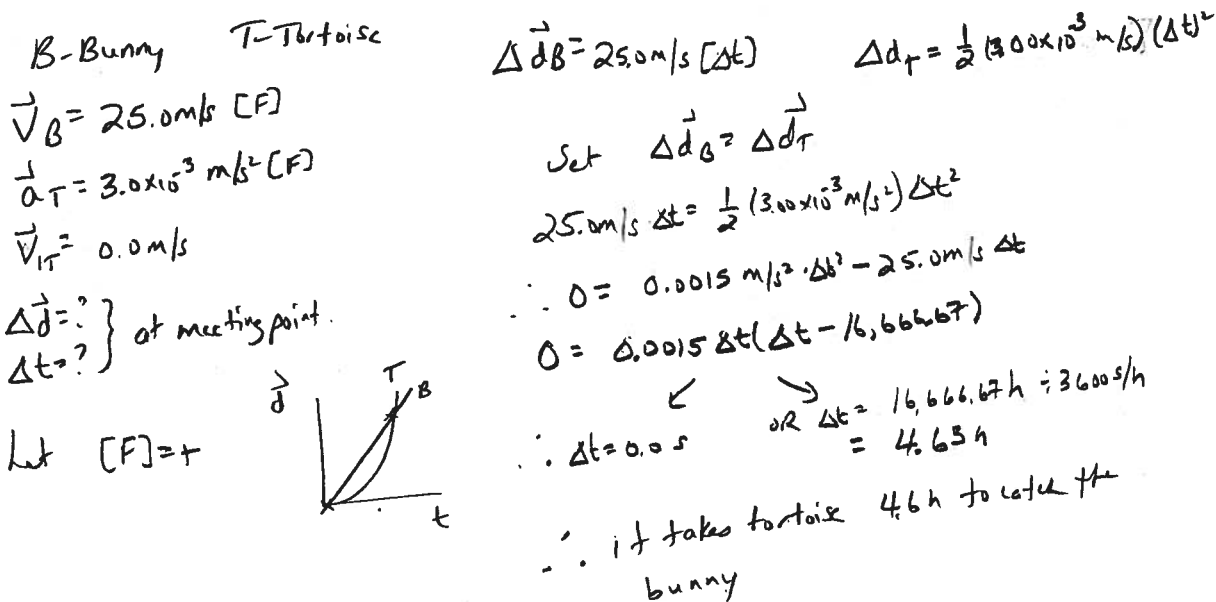 B-Bunny T-Tortoise
V⃗B = 25.0m/s [F]
a⃗T = 3.0x10⁻³ m/s² [F]
V⃗1T = 0.0m/s
Δd⃗=?
Δt=? } at meeting point.
Let [F]=+
d⃗
T
B
t
Δd⃗B = 25.0m/s [Δt]
ΔdT = 1/2 (3.00x10⁻³ m/s²)(Δt)²
Set Δd⃗B = Δd⃗T
25.0m/s Δt = 1/2 (3.00x10⁻³m/s²) Δt²
∴ 0 = 0.0015 m/s² · Δt² - 25.0m/s Δt
0 = 0.0015 Δt(Δt - 16,666.67)
∴ Δt = 0.0 s
OR Δt = 16,666.67h ÷ 3600s/h
= 4.63h
∴ it takes tortoise 4.6h to catch the
bunny